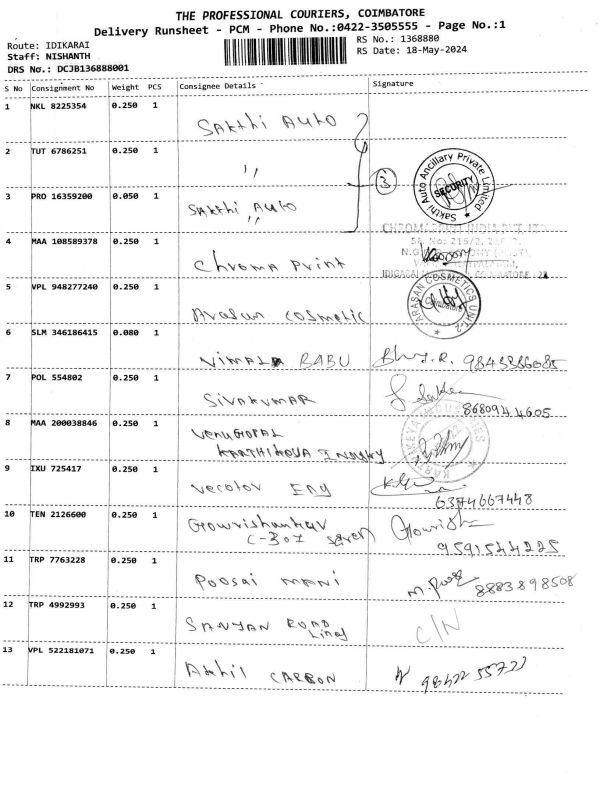 THE PROFESSIONAL COURIERS, COIMBATORE
Delivery Runsheet - PCM - Phone No.:0422-3505555 - Page No.:1
Route: IDIKARAI
RS No.: 1368880
Staff: NISHANTH
RS Date: 18-May-2024
DRS No.: DCJB136888001
S No Consignment No Weight PCS Consignee Details Signature
1 NKL 8225354 0.250 1 Sakthi Auto
2 TUT 6786251 0.250 1 ,, 3
Sakthi Auto Ancillary Private Limited
SECURITY
3 PRO 16359200 0.050 1 Sakthi Auto
,,
4 MAA 108589378 0.250 1 Chroma Print
5 VPL 948277240 0.250 1 Arasan Cosmetic
ARASAN COSMETICS UNIT-2
6 SLM 346186415 0.080 1 VIMALA BABU 9843386085
7 POL 554802 0.250 1 SIVAKUMAR
8680944605
8 MAA 200038846 0.250 1 VENUGOPAL
9 IXU 725417 0.250 1 Vecotor Eng
6374667448
10 TEN 2126600 0.250 1 Gowrishankar
C-307
9591544225
11 TRP 7763228 0.250 1 POOSAI MANI 8883898508
12 TRP 4992993 0.250 1 SANJAN ROAD C/N
Lines
13 VPL 522181071 0.250 1 Akhil CARBON 98422 55723